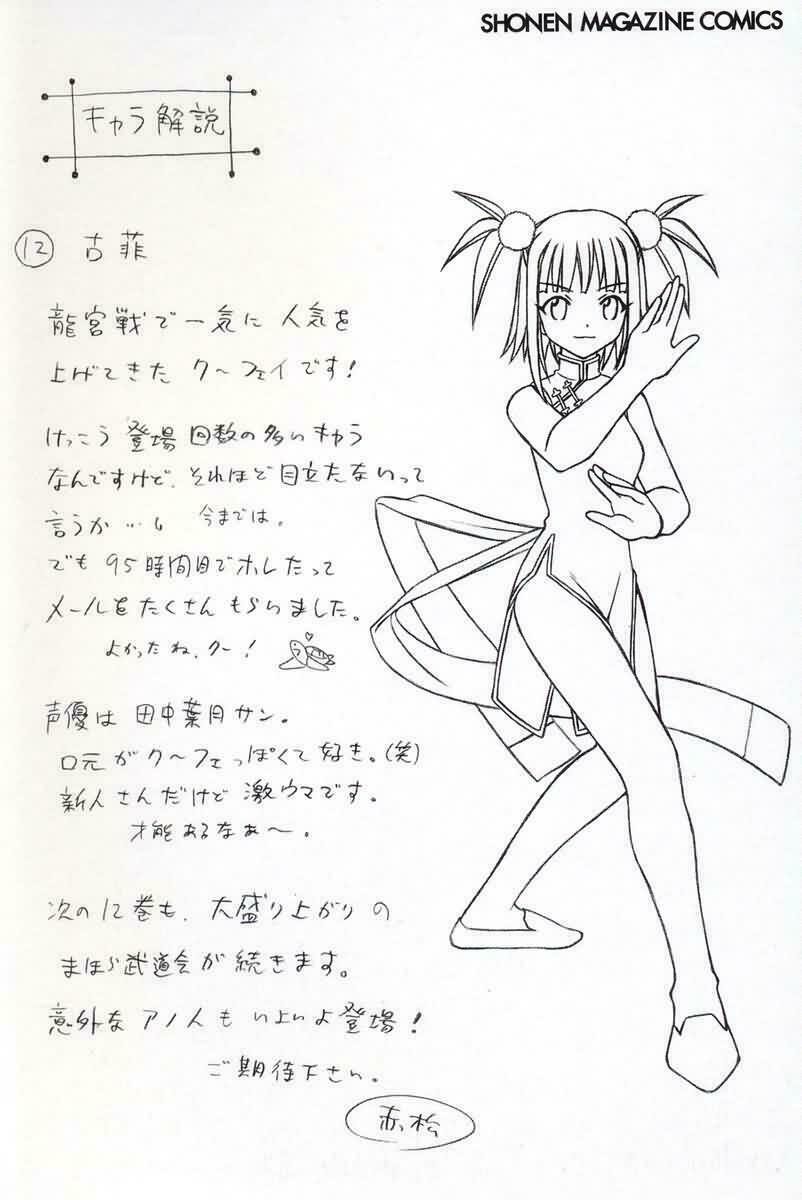 SHONEN MAGAZINE COMICS
キャラ解説
⑫ 古菲
龍宮戦で一気に人気を
上げてきた ク〜フェイです!
けっこう登場回数の多いキャラ
なんですけど、それほど目立たないって
言うか…。今までは。
でも95時間目でホレたって
メールをたくさんもらいました。
よかったね、クー!
声優は 田中葉月サン。
口元がク〜フェっぽくて好き。(笑)
新人さんだけど 激ウマです。
才能あるなぁ〜。
次の12巻も、大盛り上がりの
まほら武道会が続きます。
意外なアノ人もいよいよ登場!
ご期待下さい。
赤松